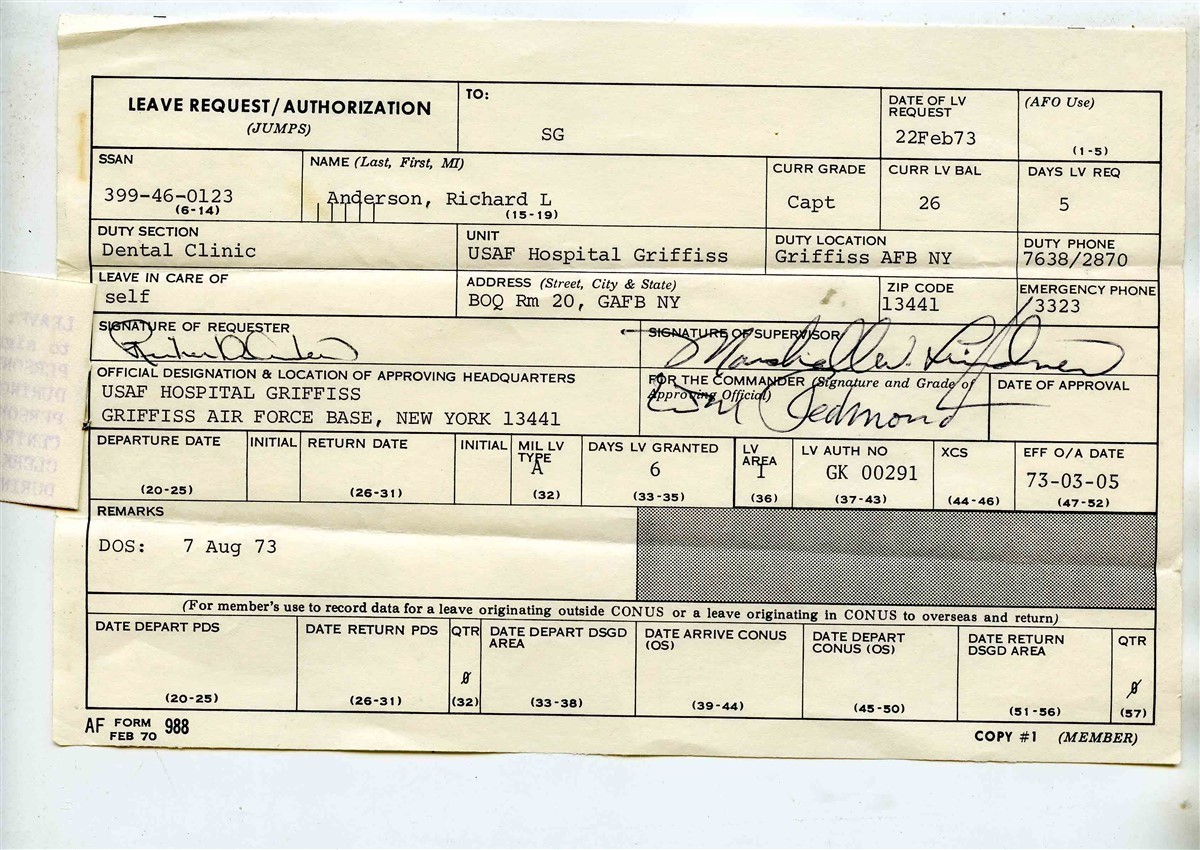 LEAVE REQUEST/AUTHORIZATION
(JUMPS)
TO:
SG
DATE OF LV REQUEST
22Feb73
(AFO Use)
(1-5)
SSAN
399-46-0123
(6-14)
NAME (Last, First, MI)
Anderson, Richard L
(15-19)
CURR GRADE
Capt
CURR LV BAL
26
DAYS LV REQ
5
DUTY SECTION
Dental Clinic
UNIT
USAF Hospital Griffiss
DUTY LOCATION
Griffiss AFB NY
DUTY PHONE
7638/2870
LEAVE IN CARE OF
self
ADDRESS (Street, City & State)
BOQ Rm 20, GAFB NY
ZIP CODE
13441
EMERGENCY PHONE
3323
SIGNATURE OF REQUESTER
SIGNATURE OF SUPERVISOR
OFFICIAL DESIGNATION & LOCATION OF APPROVING HEADQUARTERS
USAF HOSPITAL GRIFFISS
GRIFFISS AIR FORCE BASE, NEW YORK 13441
FOR THE COMMANDER (Signature and Grade of
Approving Official)
DATE OF APPROVAL
DEPARTURE DATE
(20-25)
INITIAL
RETURN DATE
(26-31)
INITIAL
MIL LV
TYPE
A
(32)
DAYS LV GRANTED
6
(33-35)
LV
AREA
1
(36)
LV AUTH NO
GK 00291
(37-43)
XCS
(44-46)
EFF O/A DATE
73-03-05
(47-52)
REMARKS
DOS: 7 Aug 73
(For member's use to record data for a leave originating outside CONUS or a leave originating in CONUS to overseas and return)
DATE DEPART PDS
(20-25)
DATE RETURN PDS
(26-31)
QTR
0
(32)
DATE DEPART DSGD
AREA
(33-38)
DATE ARRIVE CONUS
(OS)
(39-44)
DATE DEPART
CONUS (OS)
(45-50)
DATE RETURN
DSGD AREA
(51-56)
QTR
0
(57)
AF FORM 988
FEB 70
COPY #1 (MEMBER)